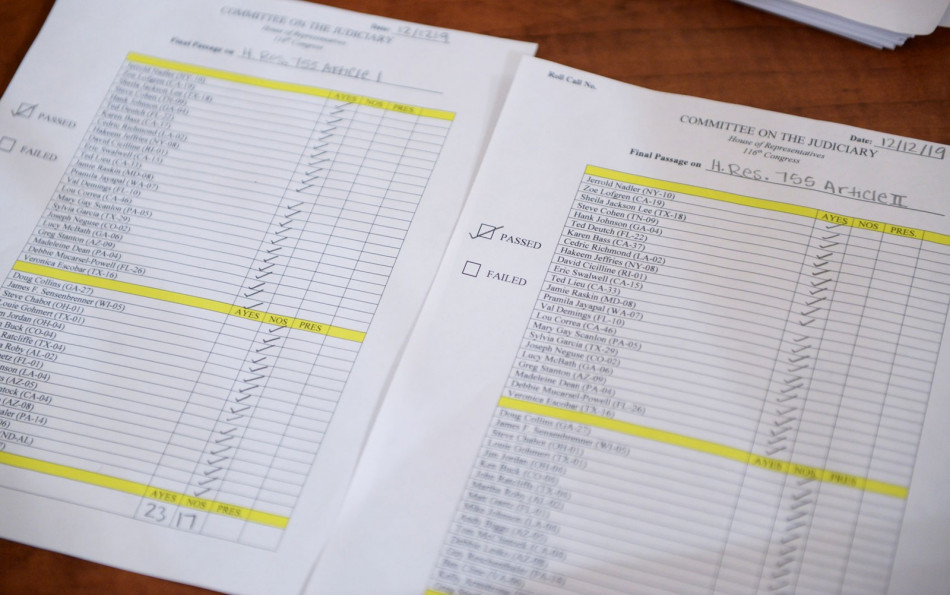 COMMITTEE ON THE JUDICIARY
Date: 12/12/19
House of Representatives
116th Congress
Final Passage on H. Res. 755 Article I
PASSED
FAILED
AYES NOS PRES.
Jerrold Nadler (NY-10)
Zoe Lofgren (CA-19)
Sheila Jackson Lee (TX-18)
Steve Cohen (TN-09)
Hank Johnson (GA-04)
Ted Deutch (FL-22)
Karen Bass (CA-37)
Cedric Richmond (LA-02)
Hakeem Jeffries (NY-08)
David Cicilline (RI-01)
Eric Swalwell (CA-15)
Ted Lieu (CA-33)
Jamie Raskin (MD-08)
Pramila Jayapal (WA-07)
Val Demings (FL-10)
Lou Correa (CA-46)
Mary Gay Scanlon (PA-05)
Sylvia Garcia (TX-29)
Joseph Neguse (CO-02)
Lucy McBath (GA-06)
Greg Stanton (AZ-09)
Madeleine Dean (PA-04)
Debbie Mucarsel-Powell (FL-26)
Veronica Escobar (TX-16)
AYES NOS PRES
Doug Collins (GA-27)
James F. Sensenbrenner (WI-05)
Steve Chabot (OH-01)
Louie Gohmert (TX-01)
Jim Jordan (OH-04)
Buck (CO-04)
Ratcliffe (TX-04)
Roby (AL-02)
(FL-01)
(LA-04)
(AZ-05)
(CA-04)
(AZ-08)
(PA-14)
(ND-AL)
AYES NOS PRES
23 17
Roll Call No.
COMMITTEE ON THE JUDICIARY
Date: 12/12/19
House of Representatives
116th Congress
Final Passage on H. Res. 755 Article II
PASSED
FAILED
AYES NOS PRES.
Jerrold Nadler (NY-10)
Zoe Lofgren (CA-19)
Sheila Jackson Lee (TX-18)
Steve Cohen (TN-09)
Hank Johnson (GA-04)
Ted Deutch (FL-22)
Karen Bass (CA-37)
Cedric Richmond (LA-02)
Hakeem Jeffries (NY-08)
David Cicilline (RI-01)
Eric Swalwell (CA-15)
Ted Lieu (CA-33)
Jamie Raskin (MD-08)
Pramila Jayapal (WA-07)
Val Demings (FL-10)
Lou Correa (CA-46)
Mary Gay Scanlon (PA-05)
Sylvia Garcia (TX-29)
Joseph Neguse (CO-02)
Lucy McBath (GA-06)
Greg Stanton (AZ-09)
Madeleine Dean (PA-04)
Debbie Mucarsel-Powell (FL-26)
Veronica Escobar (TX-16)
AYES NOS PRES
Doug Collins (GA-27)
James F. Sensenbrenner (WI-05)
Steve Chabot (OH-01)
Louie Gohmert (TX-01)
Jim Jordan (OH-04)
Ken Buck (CO-04)
John Ratcliffe (TX-04)
Martha Roby (AL-02)
Matt Gaetz (FL-01)
Mike Johnson (LA-04)
Andy Biggs (AZ-05)